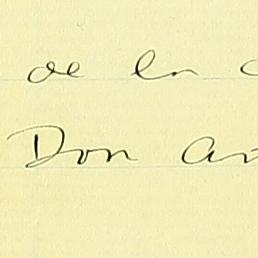 de la
Don